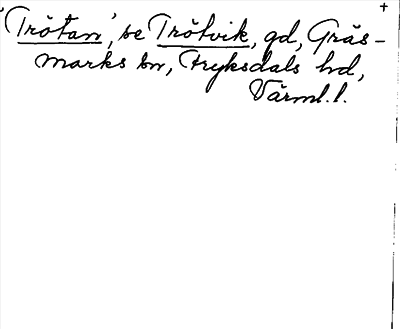 'Trötan', se Trötvik, gd, Gräs-
marks sn, Fryksdals hd,
Värml. l.
+